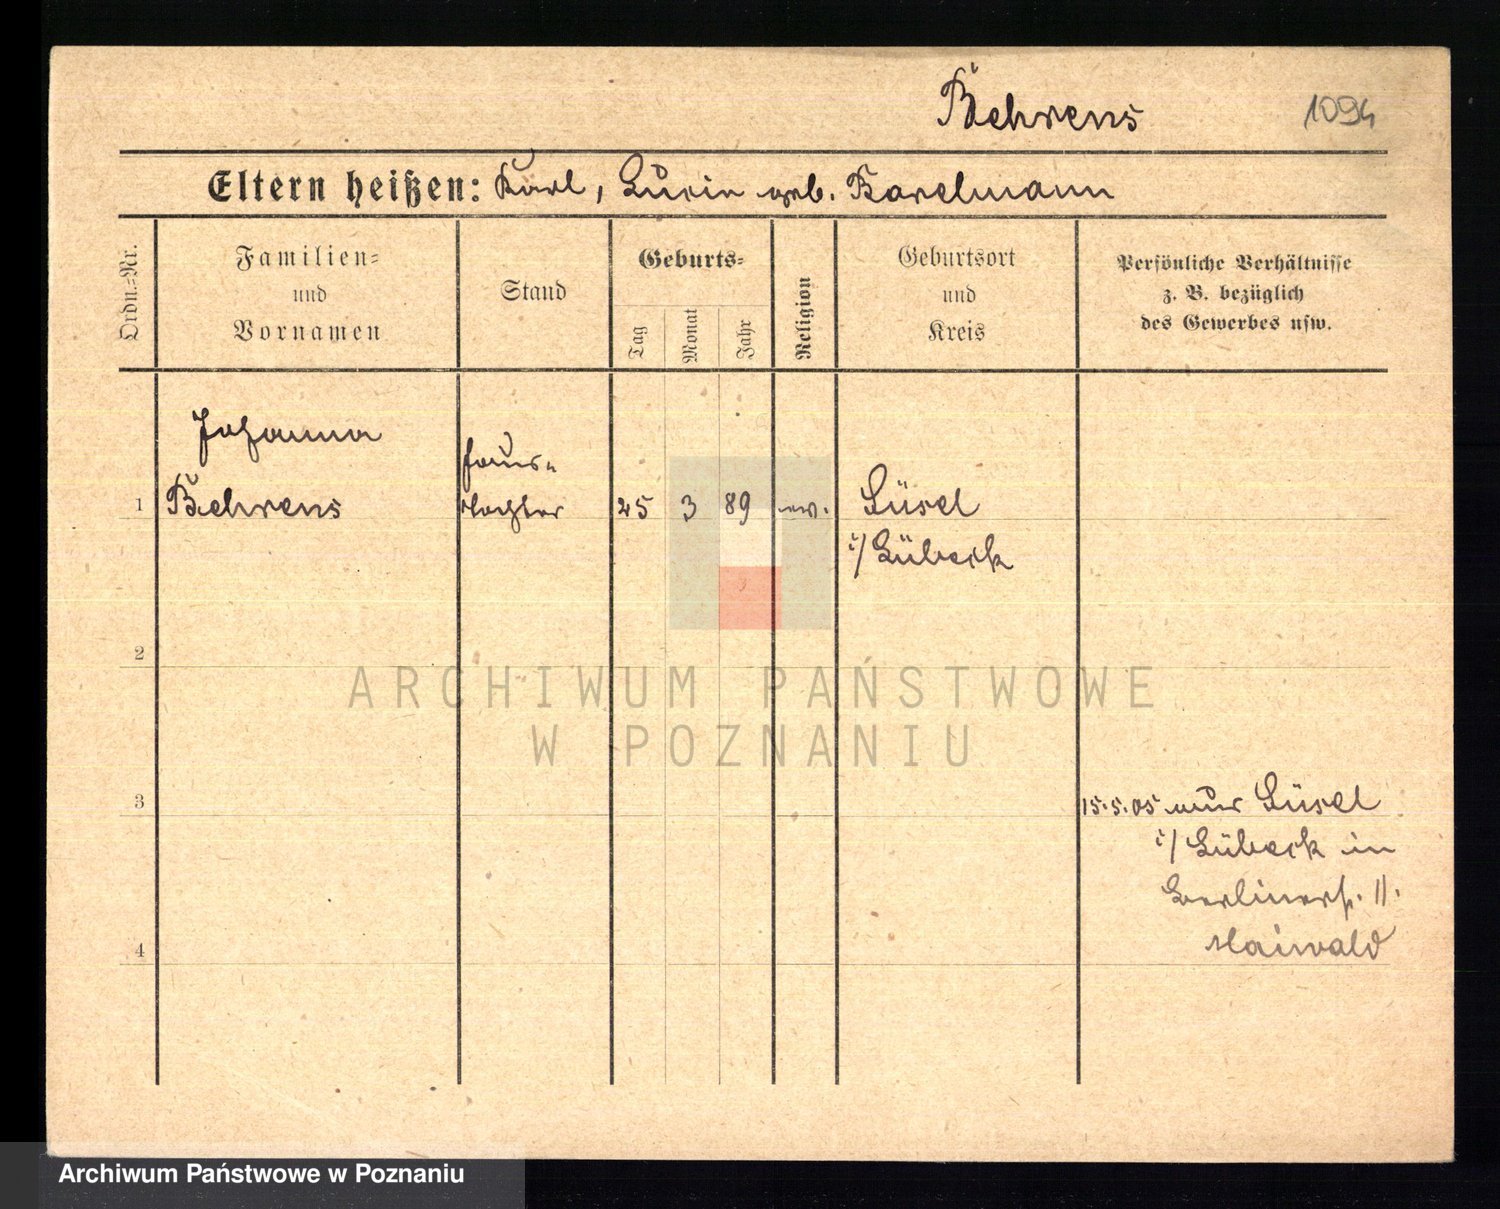 Behrens
1094
Eltern heißen: Karl, Lucie geb. Barelmann
Ordn.-Nr.
Familien-
und
Vornamen
Stand
Geburts-
Tag
Monat
Jahr
Religion
Geburtsort
und
Kreis
Persönliche Verhältnisse
z. B. bezüglich
des Gewerbes usw.
Johanna
Haus-
1 Behrens tochter 25 3 89 ev. Süsel
i/Lübeck
2
ARCHIWUM PAŃSTWOWE
W POZNANIU
3
15.5.05 aus Süsel
i/Lübeck in
Berlinerstr. 11.
Maiwald
4
Archiwum Państwowe w Poznaniu